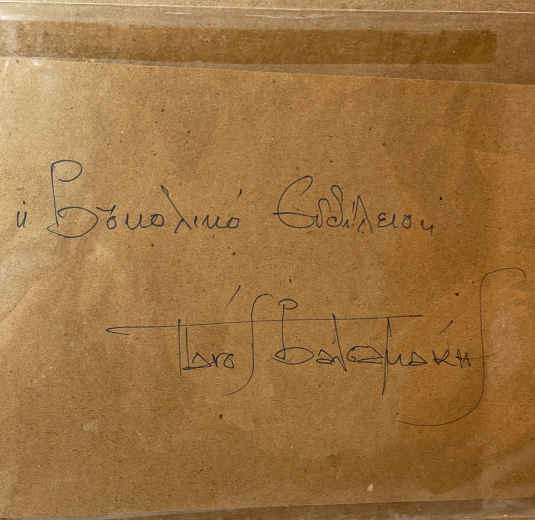 " Βουκολικό Ειδύλλειο"
Πάνος Βαλσαμάκης